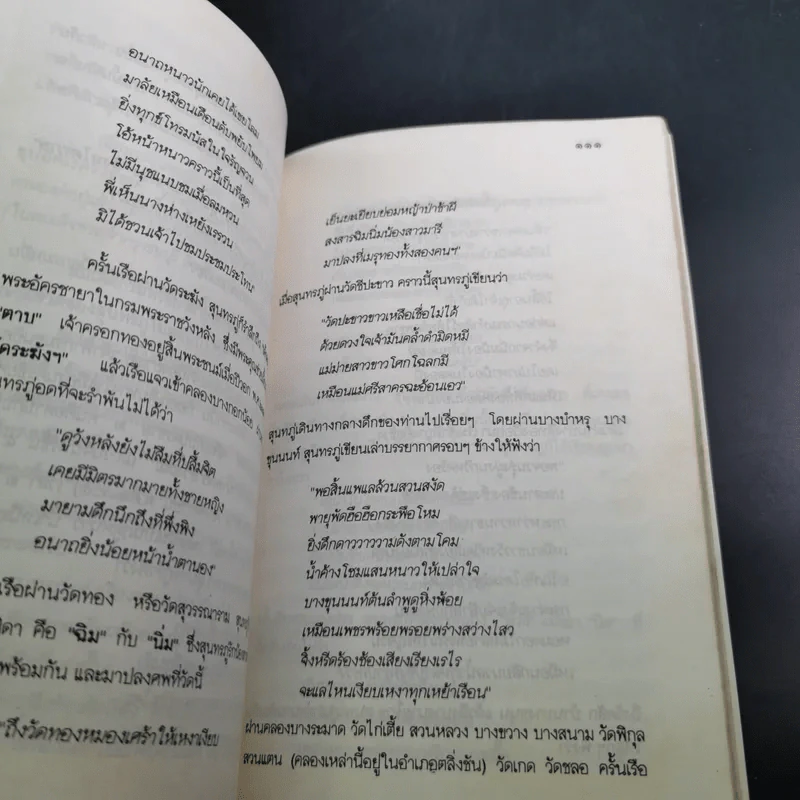 อนาถหนาวนักเคยได้เชยโฉม
มาลัยเหมือนเดือนดับพยับโพยม
ยิ่งทุกข์โทรมนัสในใจรัญจวน
โอ้หน้าหนาวคราวนี้เป็นที่สุด
ไม่มีนุชแนบชมเมื่อลมหวน
พี่เห็นนางห่างเหยังเรรวน
มิได้ชวนเจ้าไปชมประชมประโทน"
ครั้นเรือผ่านวัดระฆัง สุนทรภู่ก็
พระอัครชายาในกรมพระราชวังหลัง ซึ่งมีพระ
"ตาบ" เจ้าครอกทองอยู่สิ้นพระชนม์เมื่อปี
วัดระฆังๆ" แล้วเรือแจวเข้าคลองบางกอกน้อย
ทรภู่อดที่จะรำพันไม่ได้ว่า
"ดูวังหลังยังไม่ลืมที่ปลื้มจิต
เคยมีมิตรมากมายทั้งชายหญิง
มายามดึกนึกถึงที่พึ่งพิง
อนาถยิ่งน้อยหน้าน้ำตานอง"
เรือผ่านวัดทอง หรือวัดสุวรรณาราม
ดา คือ "ฉิม" กับ "นิ่ม" ซึ่งสุนทรภู่รัก
พร้อมกัน และมาปลงศพที่วัดนี้
"ถึงวัดทองหมองเศร้าให้เหงาเงียบ
๑๑๑
เย็นยะเยียบย่อมหญ้าป่าช้าผี
สงสารฉิมนิ่มน้องสาวมารี
มาปลงที่เมรุทองทั้งสองคนฯ"
เมื่อสุนทรภู่ผ่านวัดชีปะขาว คราวนี้สุนทรภู่เขียนว่า
"วัดปะขาวขาวเหลือเชื่อไม่ได้
ด้วยดวงใจเจ้ามันคล้ำดำมิดหมี
แม่ม่ายสาวขาวโศกโฉลกมี
เหมือนแม่ศรีสาครฉะอ้อนเอว"
สุนทภู่เดินทางกลางดึกของท่านไปเรื่อยๆ โดยผ่านบางบำหรุ บาง
ขุนนนท์ สุนทรภู่เขียนเล่าบรรยากาศรอบๆ ข้างให้ฟังว่า
"พอสิ้นแพแลล้วนสวนสงัด
พายุพัดฮือฮือกระพือโหม
ยิ่งดึกดาววาววามดังตามโคม
น้ำค้างโชมแสนหนาวให้เปล่าใจ
บางขุนนนท์ต้นลำพูดูหิ่งห้อย
เหมือนเพชรพร้อยพรอยพร่างสว่างไสว
จิ้งหรีดร้องซ้องเสียงเรียงเรไร
จะแลไหนเงียบเหงาทุกเหย้าเรือน"
ผ่านคลองบางระมาด วัดไก่เตี้ย สวนหลวง บางขวาง บางสนาม วัดพิกุล
สวนแตน (คลองเหล่านี้อยู่ในอำเภอตลิ่งชัน) วัดเกด วัดชลอ ครั้นเรือ